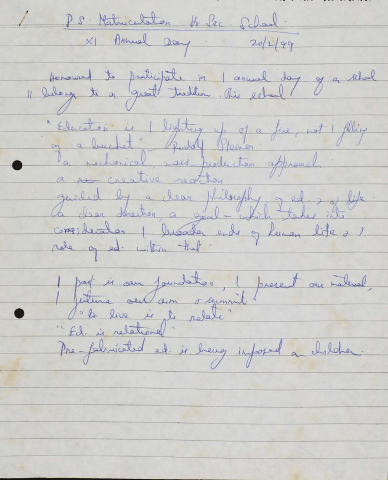 P.S. Matriculation Hr Sec. School.
XI Annual Day 20/2/99
Honoured to participate in / annual day of a school
belongs to a great tradition. This school
"Education is / lighting up of a fire, not / filling
of a bucket" - Rudolf Steiner.
a mechanical mass production approach
a creative
guided by a clear philosophy of ed. & of life
a clear direction, a goal - which takes into
consideration / broader ends of human life & /
role of ed. within that.
/ past is our foundation, / present our material,
/ future our aim & summit
"to live is to relate"
"Ed. is relational"
Pre-fabricated ed. is being imposed on children.